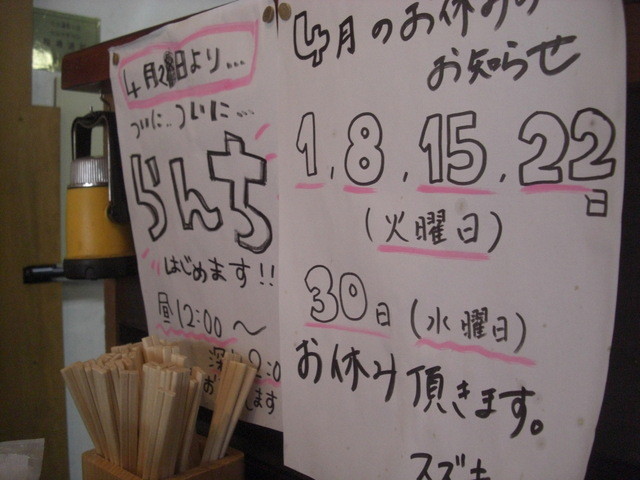 4月2日より...
ついに...ついに...
らんち
はじめます!!
昼12:00〜
深 2:0
お ます
4月のお休みの
お知らせ
1,8,15,22日
(火曜日)
30日(水曜日)
お休み頂きます。
スズキ